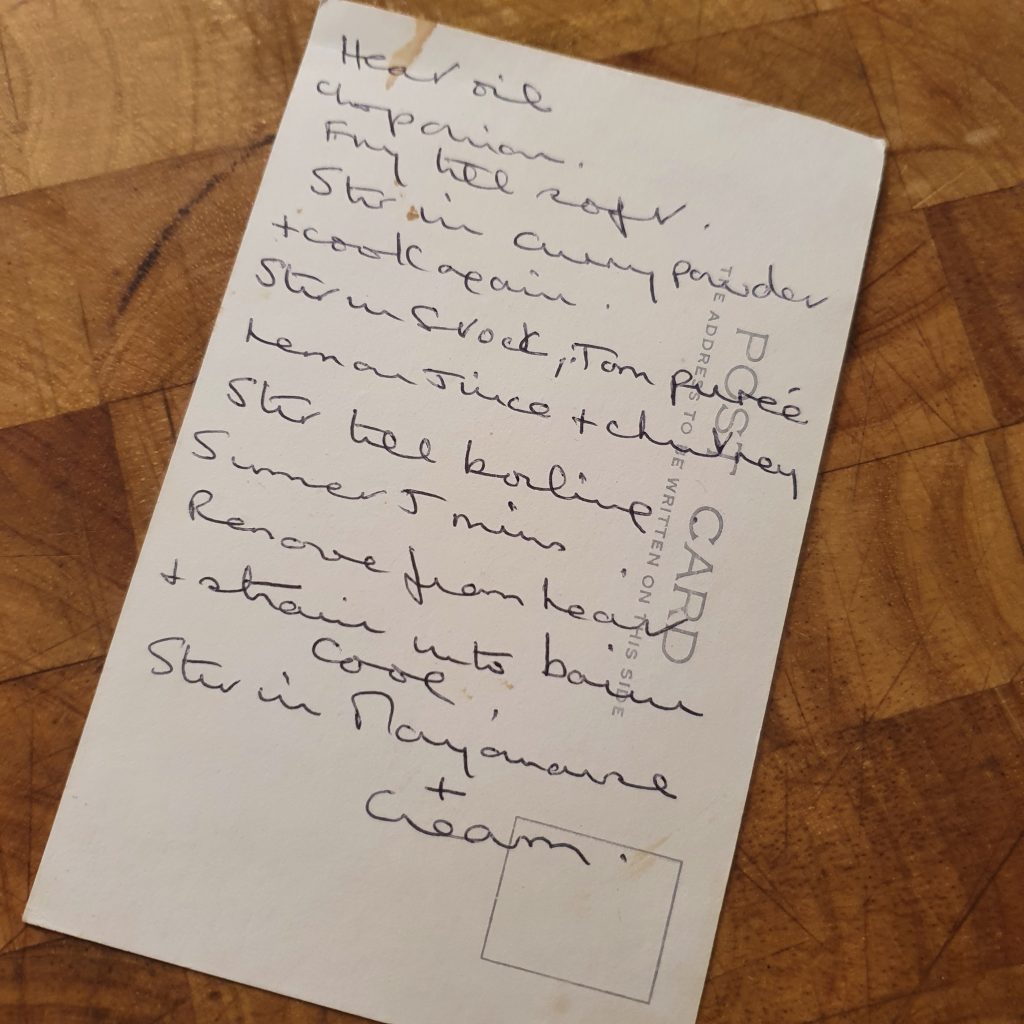 Heat oil
chop onion.
Fry till soft.
Stir in curry powder
+ cook again.
Stir in Stock, Tom purée
Lemon Juice + chutney
Stir till boiling
Simmer 5 mins.
Remove from heat
+ strain into basin
Cool.
Stir in Mayonaise
+
Cream.
POST CARD
THE ADDRESS TO BE WRITTEN ON THIS SIDE